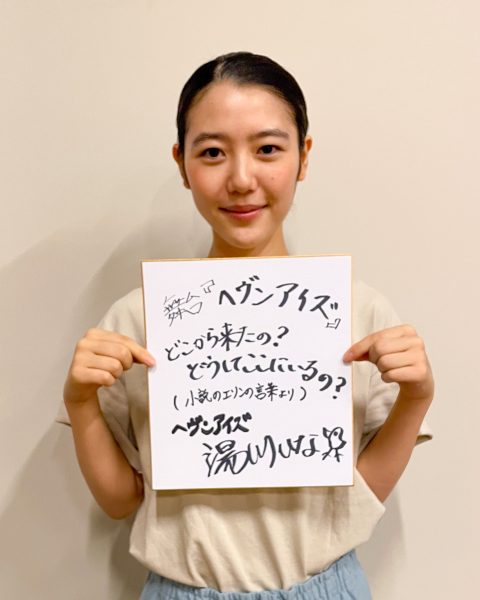 舞台『ヘヴンアイズ』
どこから来たの？
どうしてここにいるの？
(小説のエリンの言葉より)
ヘヴンアイズ
湯川ひな